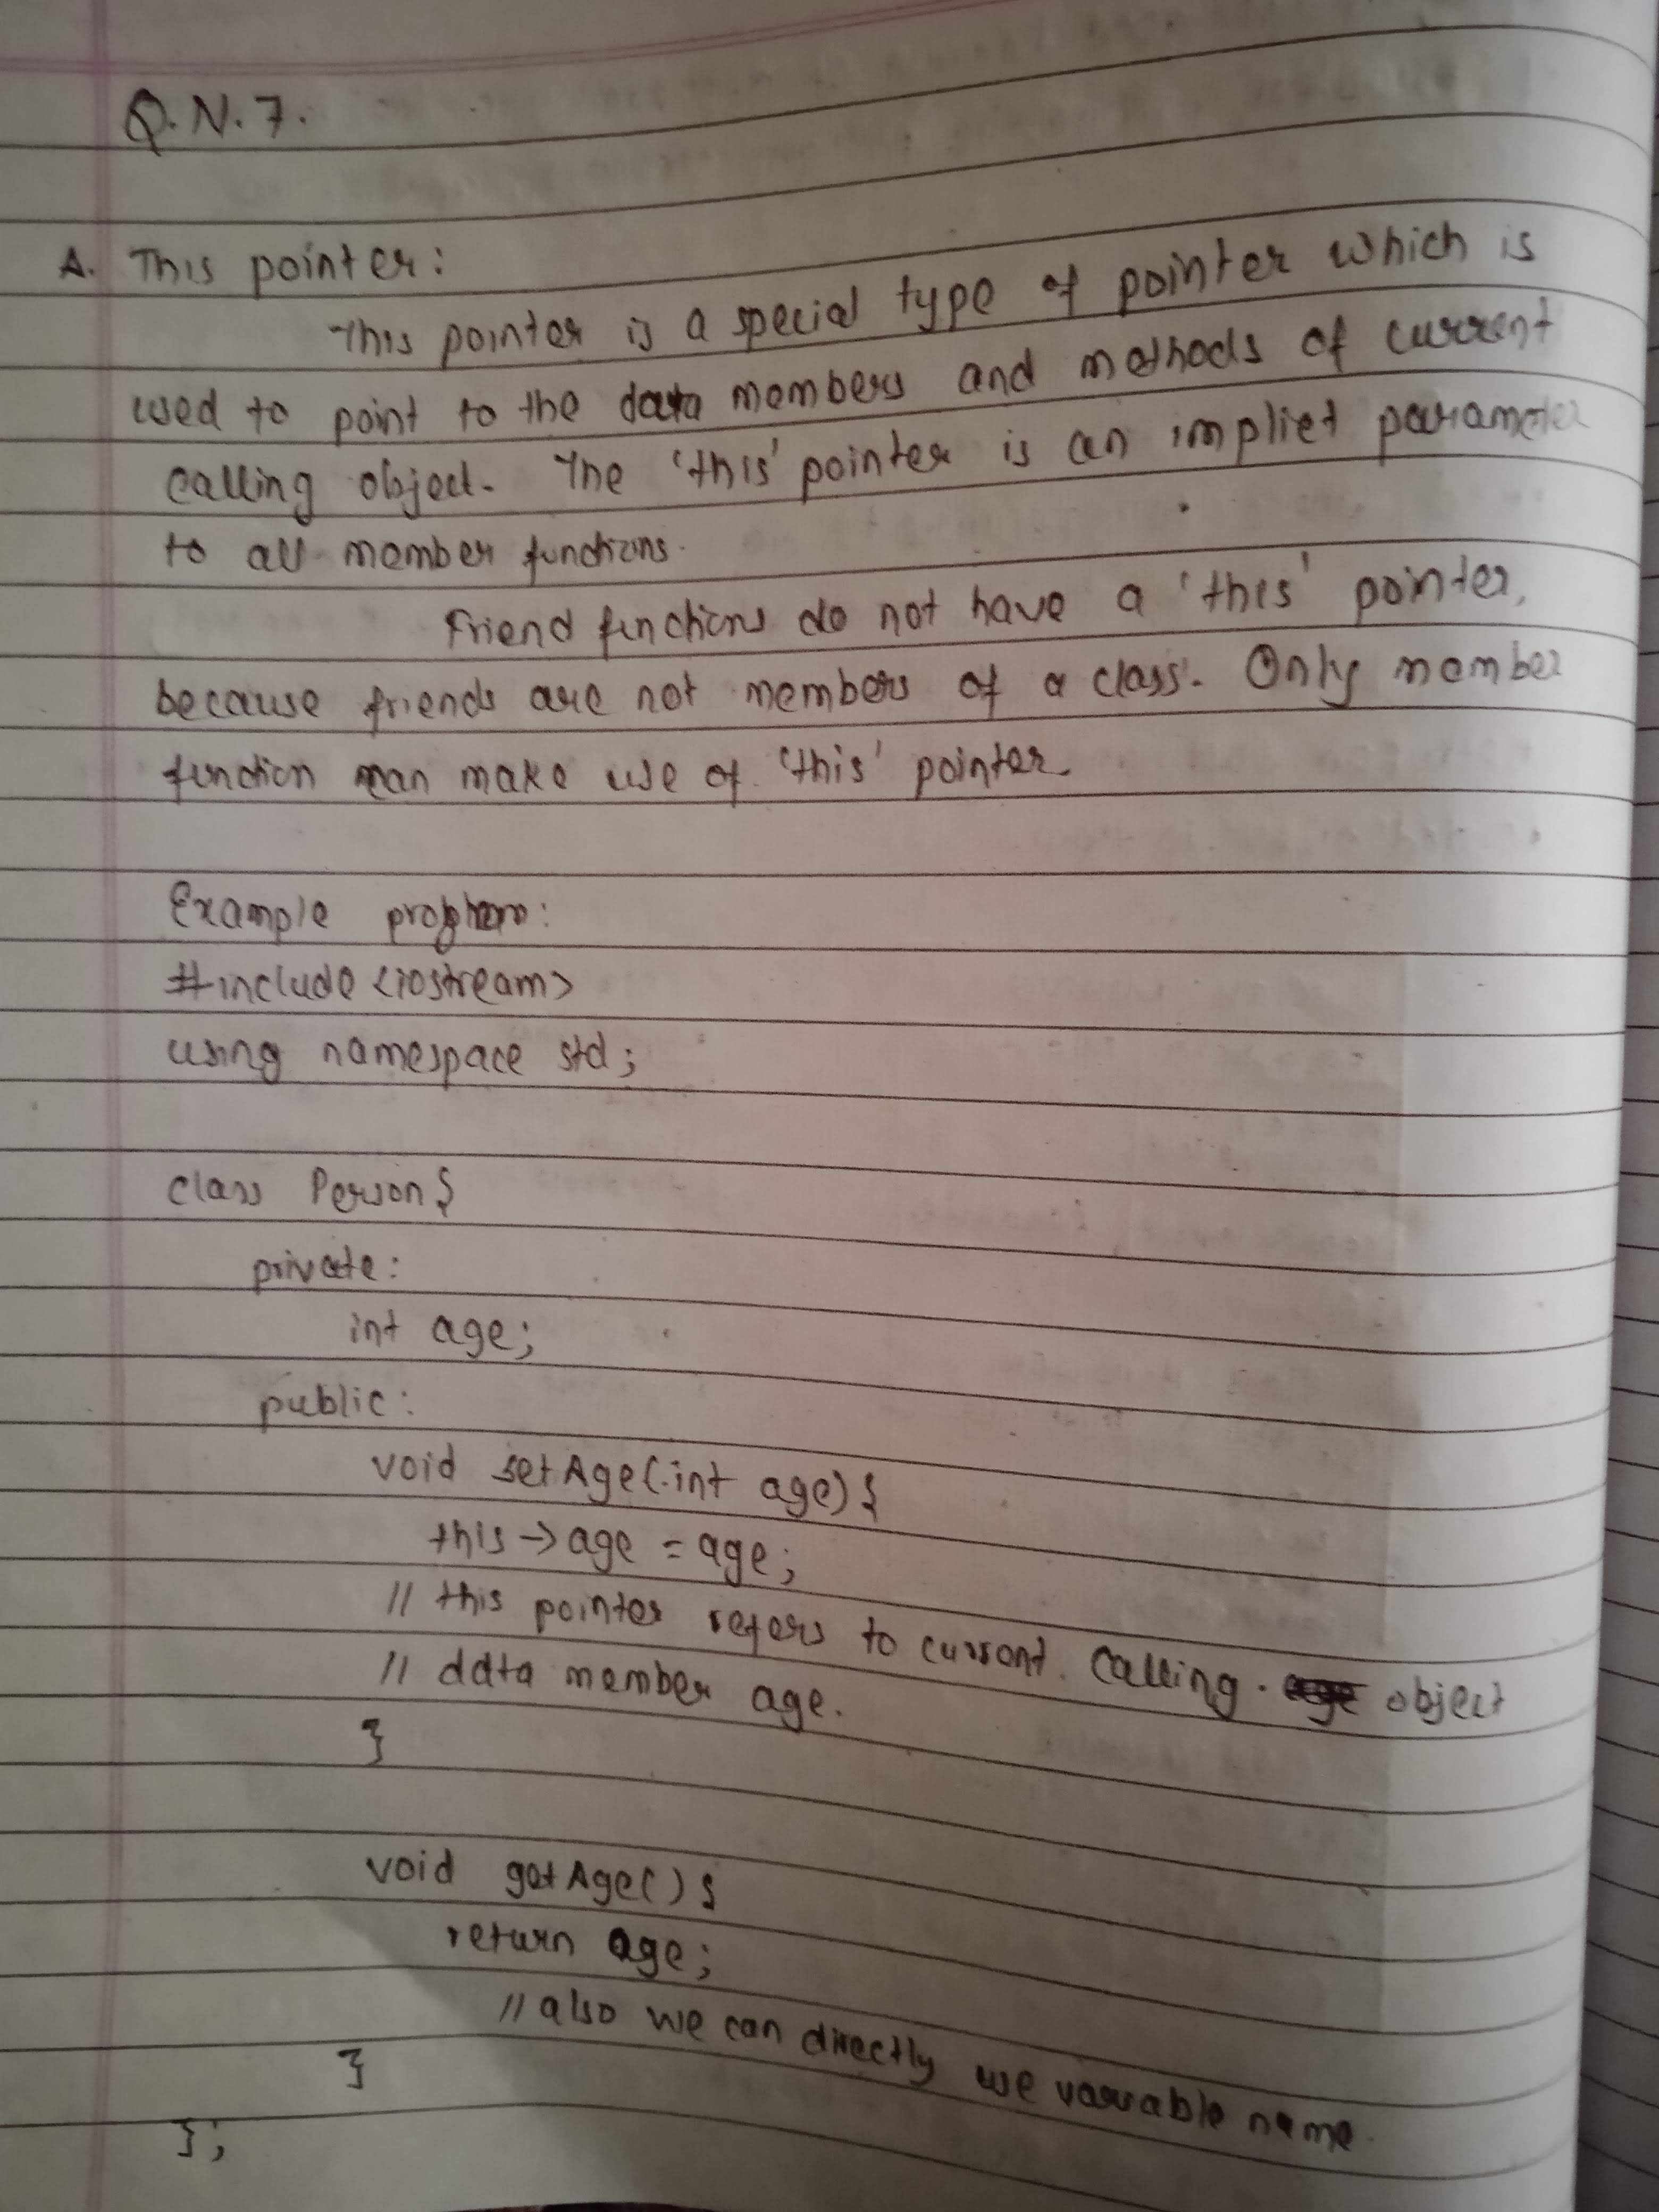 Q.N.7.
A. This pointer:
This pointer is a special type of pointer which is
used to point to the data members and methods of current
calling object. The 'this' pointer is an impliet parameter
to all member functions.
Friend functions do not have a 'this' pointer,
because friends are not members of a class. Only member
function can make use of 'this' pointer.
Example
#include <iostream>
using namespace std;
class Person{
private:
int age;
public:
void setAge(int age){
this->age = age;
// this pointer refers to current calling object
// data member age.
}
void getAge(){
return age;
// also we can directly use variable name.
}
};